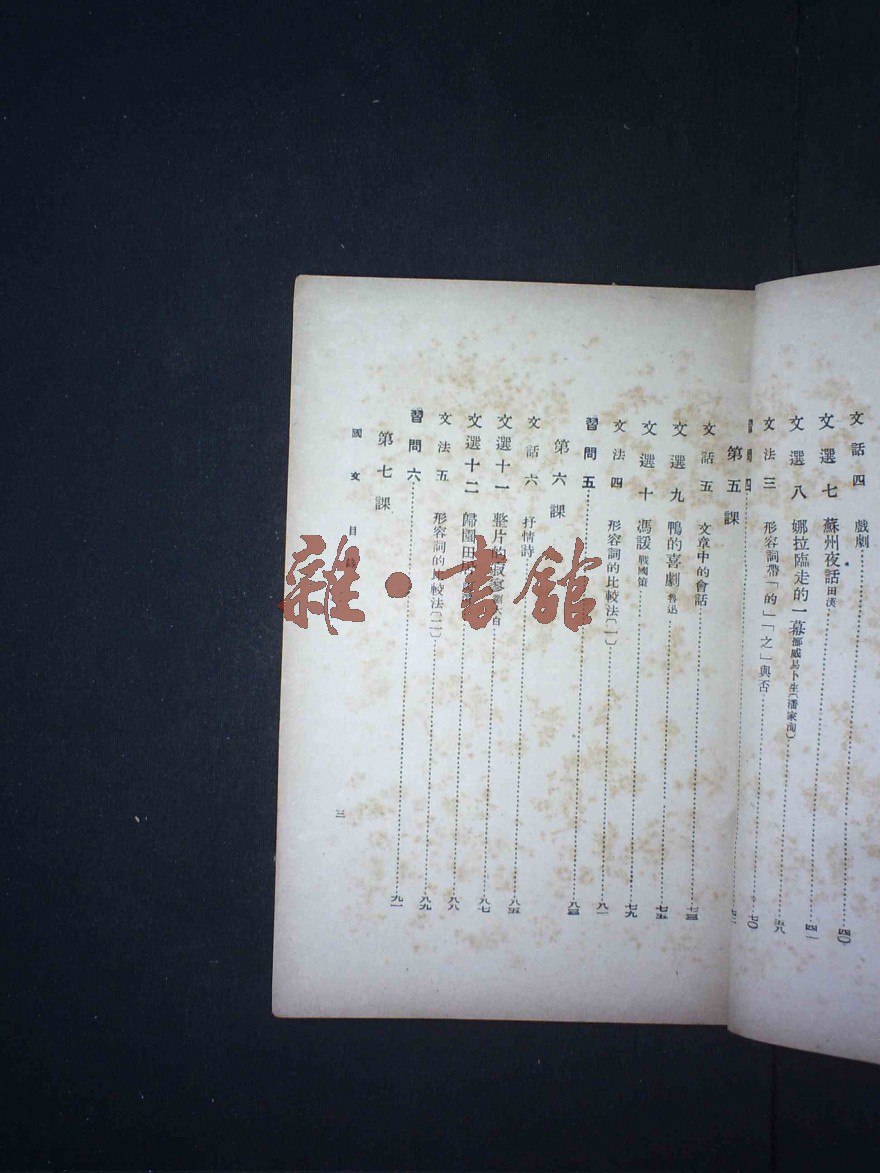 文話四 戲劇……四〇
文選七 蘇州夜話 田漢……四一
文選八 娜拉臨走的一幕 挪威易卜生(潘家洵)……五八
文法三 形容詞帶「的」「之」與否……七〇
習問四……七二
第五課
文話五 文章中的會話……七三
文選九 鴨的喜劇 魯迅……七五
文選十 馮諼 戰國策……七九
文法四 形容詞的比較法(一)……八一
習問五……八三
第六課
文話六 抒情詩……八五
文選十一 整片的寂寥……八七
文選十二 歸園田……八八
文法五 形容詞的比較法(二)……八九
習問六……九一
第七課
國文 目
三
雜·書館